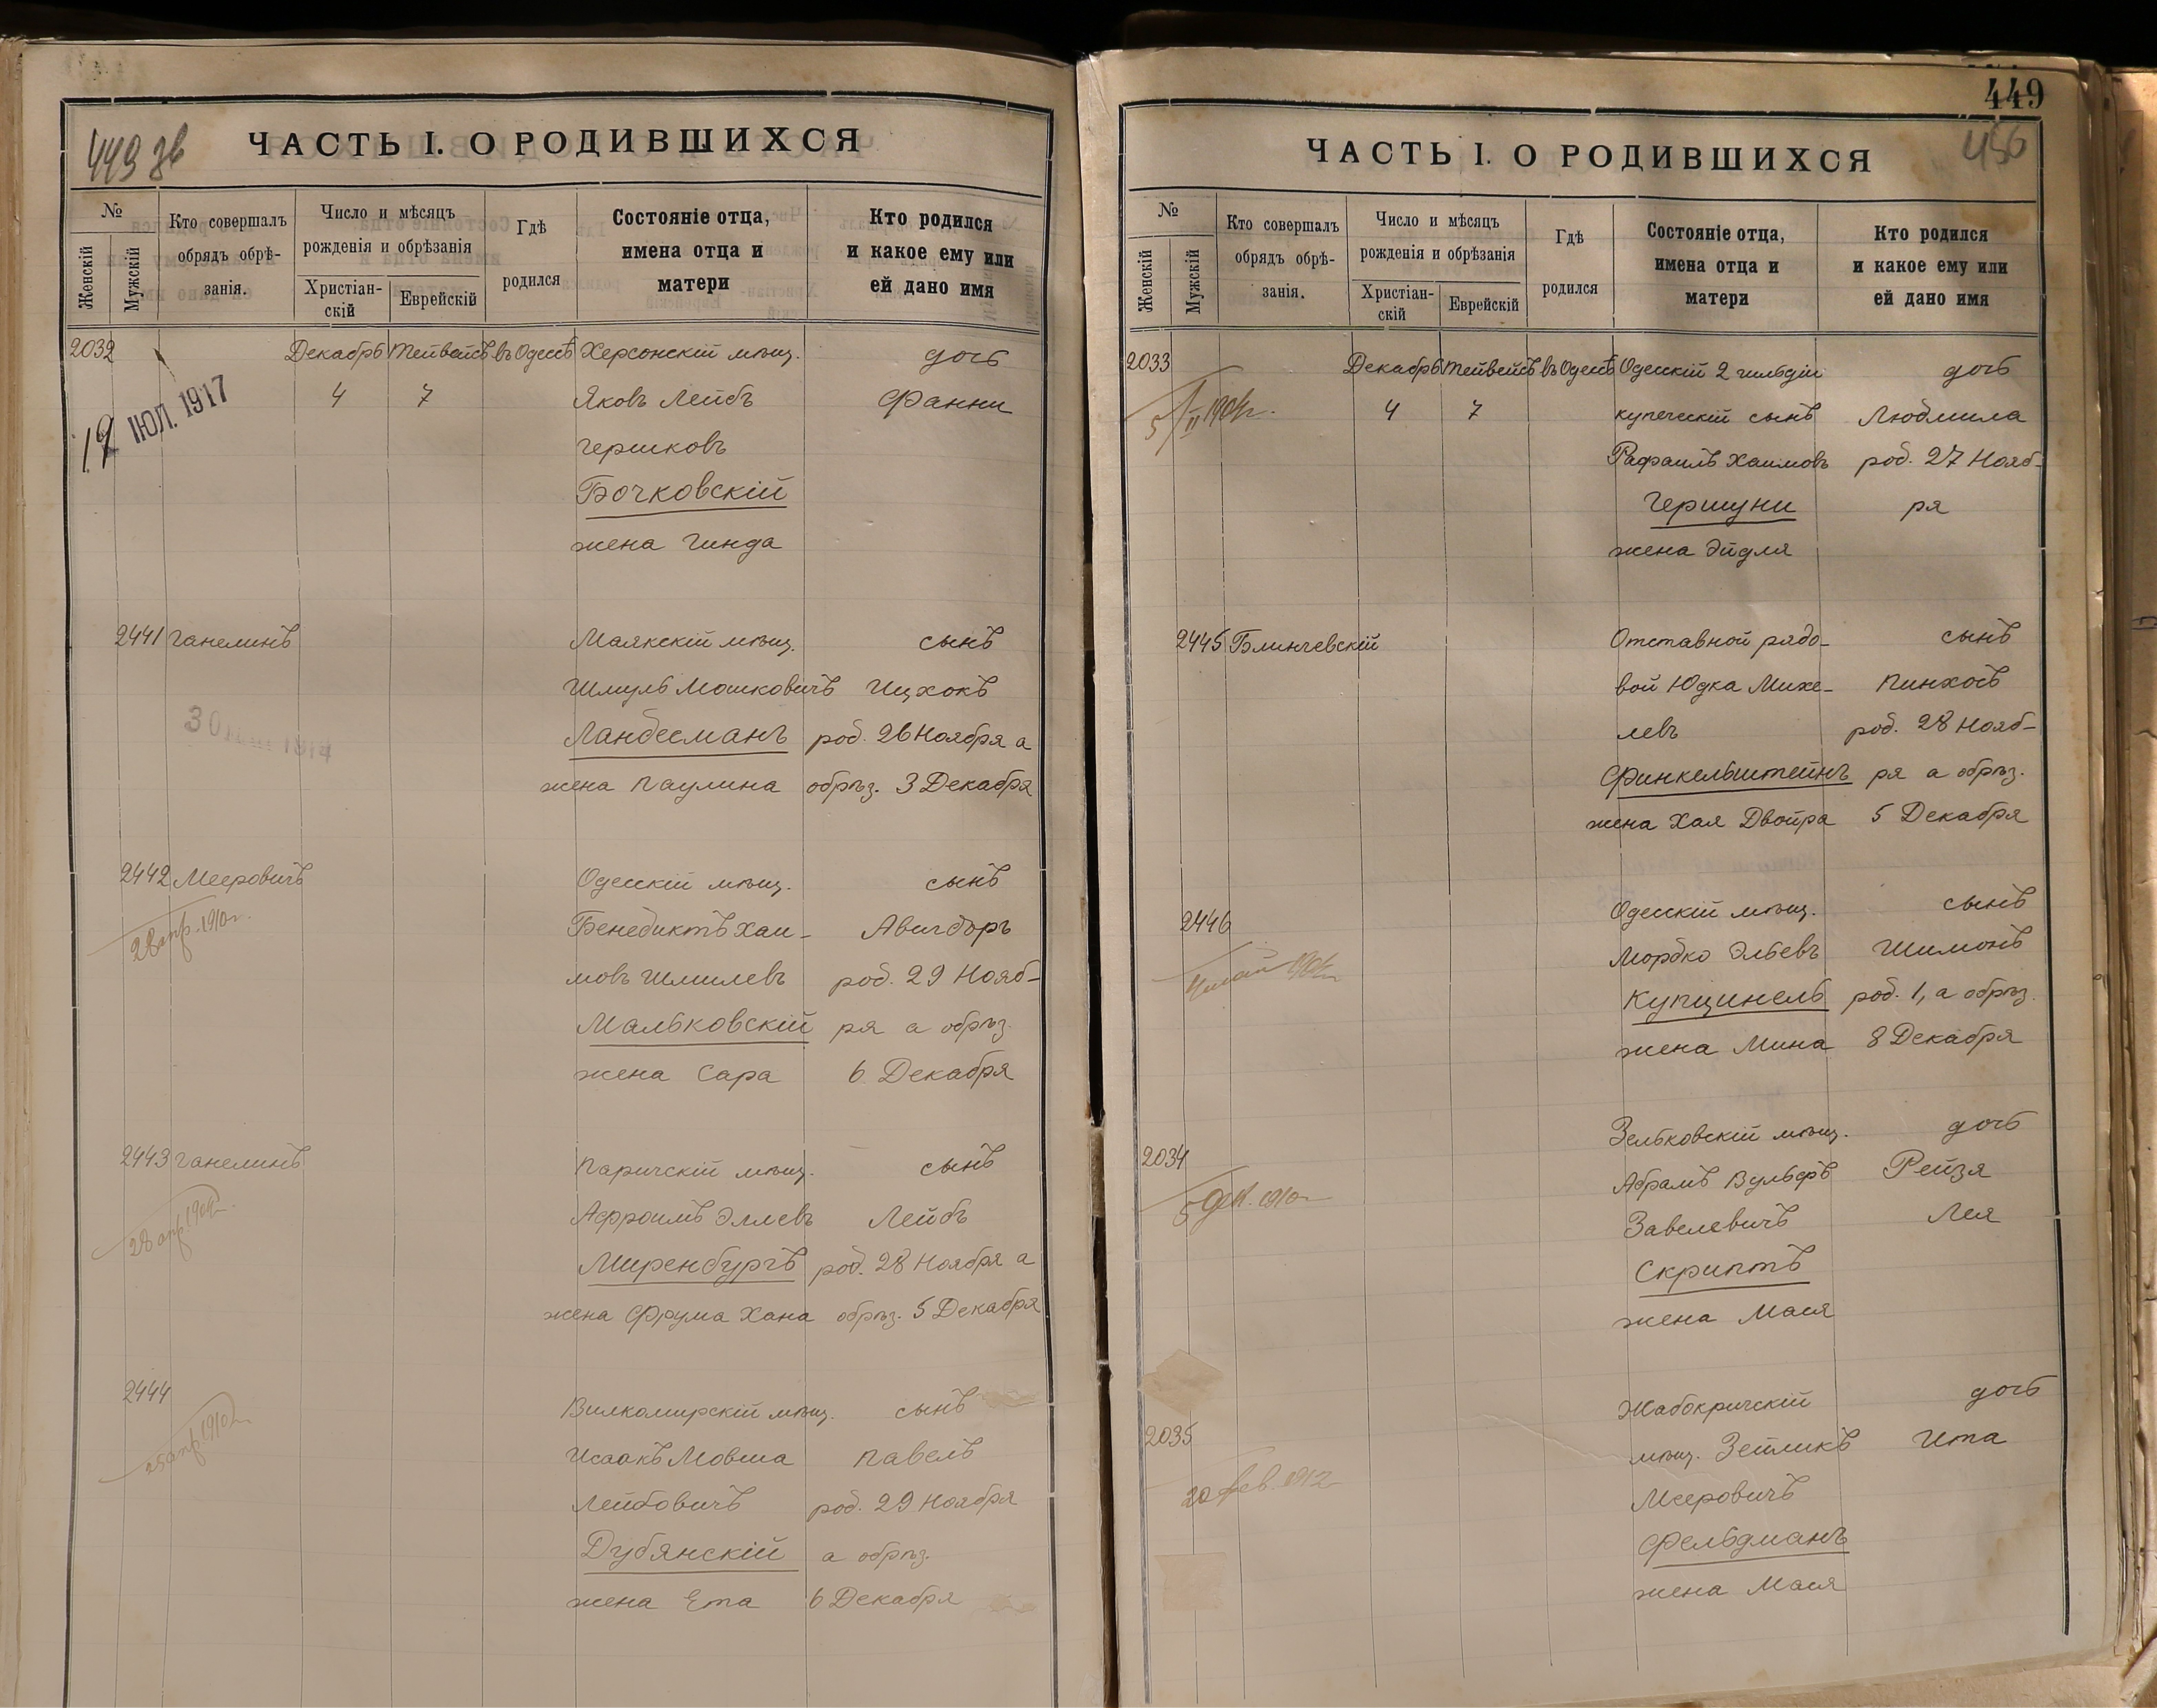 449 зв
ЧАСТЬ I. О РОДИВШИХСЯ
№
Женскій
Мужскій
Кто совершалъ
обрядъ обрѣ-
занія.
Число и мѣсяцъ
рожденія и обрѣзанія
Христіан-
скій
Еврейскій
Гдѣ
родился
Состояніе отца,
имена отца и
матери
Кто родился
и какое ему или
ей дано имя
2032 Декабрь Тейвейсъ въ Одессѣ Херсонскій мѣщ. дочь
4 7 Яковъ Лейбъ Фанни
19 ІЮЛ. 1917
Гершковъ
Бочковскій
жена Гинда
2441 Ганелинъ Маякскій мѣщ. сынъ
Шмуль Мошковичъ Ицхокъ
Ландесманъ род. 26 Ноября а
жена Паулина обрѣз. 3 Декабря
2442 Мееровичъ Одесскій мѣщ. сынъ
28 апр. 1910 г.
Бенедиктъ Хаи- Авигдоръ
мовъ Шмилевъ род. 29 Нояб-
Мальковскій ря а обрѣз.
жена Сара 6 Декабря
2443 Ганелинъ Паричскій мѣщ. сынъ
Афроимъ Эллевъ Лейбъ
Миренбургъ род. 28 Ноября а
жена Фрума Хана обрѣз. 5 Декабря
2444 Вилкомирскій мѣщ. сынъ
25 апр. 1910 г.
Исаакъ Мовша Павелъ
Лейбовичъ род. 29 Ноября
Дубянскій а обрѣз.
жена Ета 6 Декабря
449
456
ЧАСТЬ I. О РОДИВШИХСЯ
№
Женскій
Мужскій
Кто совершалъ
обрядъ обрѣ-
занія.
Число и мѣсяцъ
рожденія и обрѣзанія
Христіан-
скій
Еврейскій
Гдѣ
родился
Состояніе отца,
имена отца и
матери
Кто родился
и какое ему или
ей дано имя
2033 Декабрь Тейвейсъ въ Одессѣ Одесскій 2 гильдіи дочь
4 7 купеческій сынъ Людмила
Рафаилъ Хаимовъ род. 27 Нояб-
Гершуни ря
жена Эйдля
2445 Блинчевскій Отставной рядо- сынъ
вой Юдка Михе- Пинхосъ
левъ род. 28 Нояб-
Финкельштейнъ ря а обрѣз.
жена Хая Двойра 5 Декабря
2446 Одесскій мѣщ. сынъ
Мордко Эльевъ Шимонъ
Купцинель род. 1, а обрѣз.
жена Мина 8 Декабря
2034 Зельковскій мѣщ. дочь
Абрамъ Вульфъ Рейзя
Завелевичъ Лея
Скриптъ
жена Мася
2035 Жабокричскій дочь
мѣщ. Зейликъ Ита
20 Фев. 1912
Мееровичъ
Фельдманъ
жена Мася